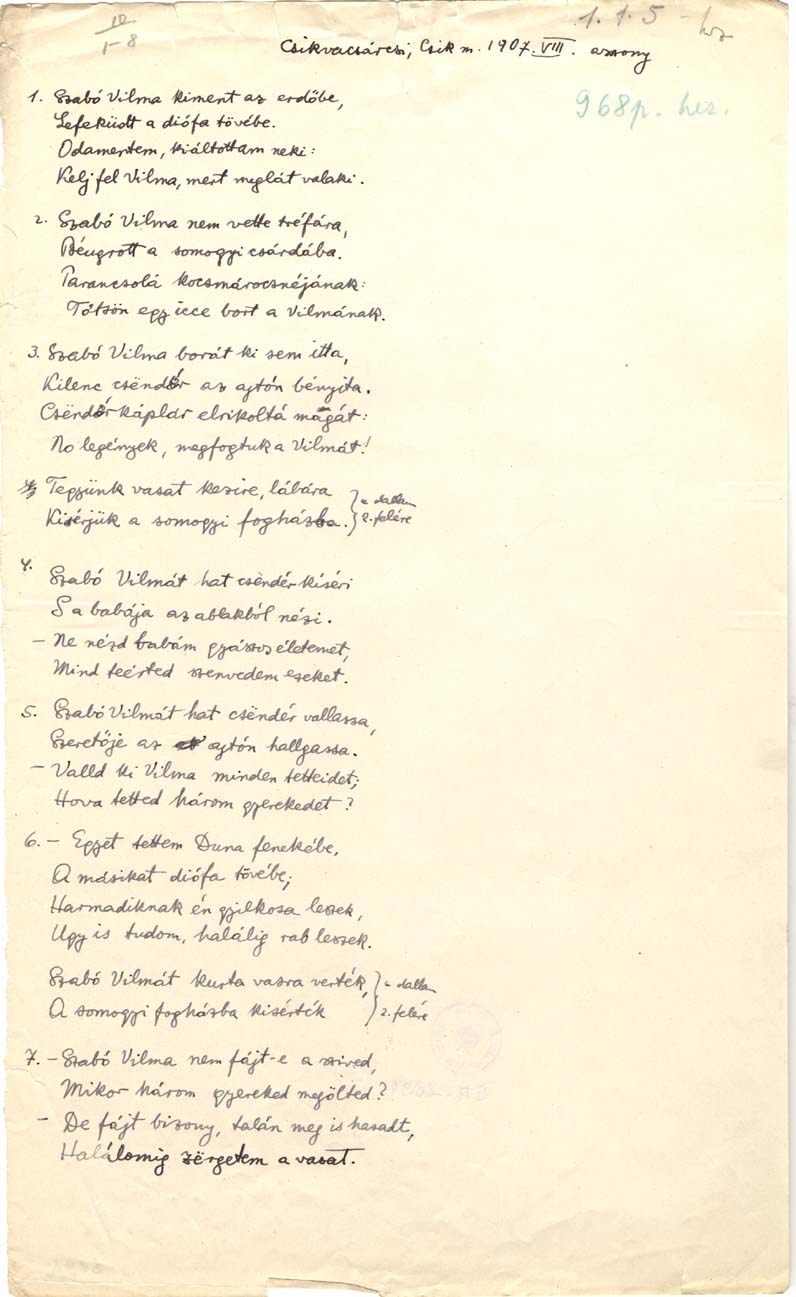 10
1-8
1.1.5-hz
Csikvacsárcsi, Csik m. 1907. VIII. asszony
968p. hez.
1. Szabó Vilma kiment az erdőbe,
Lefeküdt a diófa tövébe.
Odamentem, kiáltottam neki:
Kelj fel Vilma, mert meglát valaki.
2. Szabó Vilma nem vette tréfára,
Béugrott a somogyi csárdába.
Parancsolá kocsmárocsnéjának:
Tőtsön egy icce bort a Vilmának.
3. Szabó Vilma borát ki sem itta,
Kilenc csëndér az ajtón bényita.
Csëndérkáplár elrikoltá magát:
No legények, megfogtuk a Vilmát!
Tegyünk vasat kezire, lábára
Kisérjük a somogyi fogházba.
a dallam
2. felére
4.
Szabó Vilmát hat csëndér kiséri
S a babája az ablakból nézi.
– Ne nézd babám gyászos életemet,
Mind teérted szenvedem ezeket.
5. Szabó Vilmát hat csëndér vallassa,
Szeretője az ajtón hallgassa.
– Valld ki Vilma minden tetteidet;
Hova tetted három gyerekedet?
6. – Egyet tettem Duna fenekébe,
A másikat diófa tövébe;
Harmadiknak én gyilkosa leszek,
Ugy is tudom, halálig rab leszek.
Szabó Vilmát kurta vasra verték,
A somogyi fogházba kisérték
a dallam
2. felére
7. – Szabó Vilma nem fájt-e a szived,
Mikor három gyereked megölted?
– De fájt bizony, talán meg is hasadt,
Halálomig zërgetem a vasat.